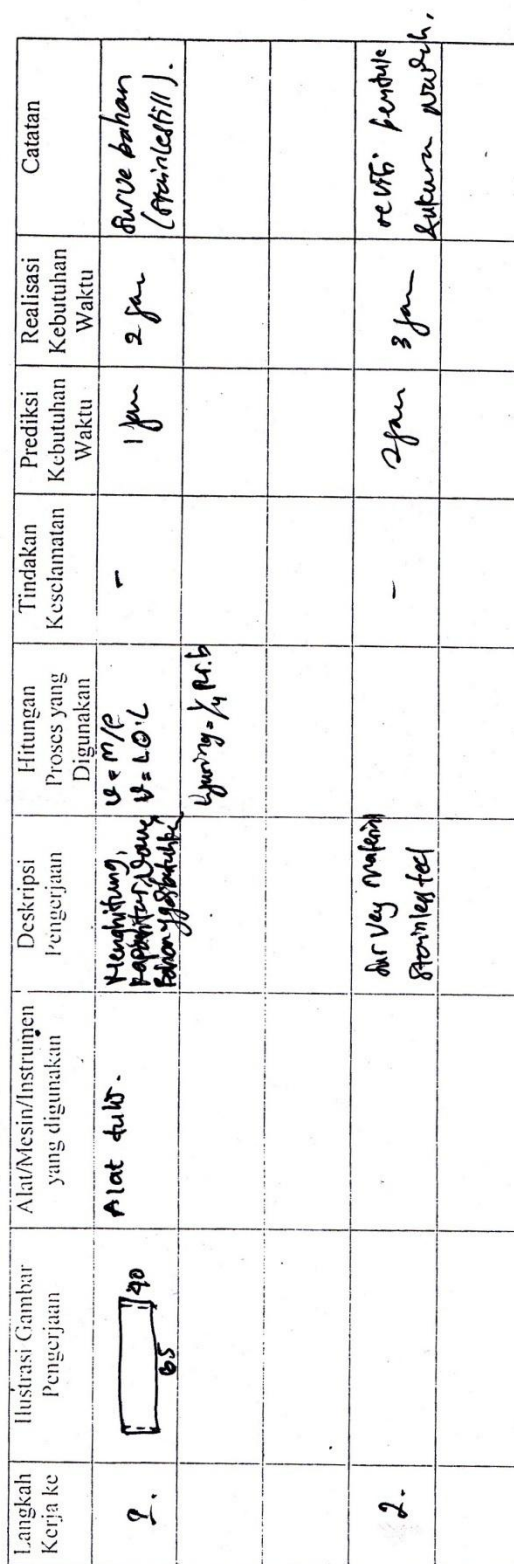 Langkah
Kerja ke
Ilustrasi Gambar
Pengerjaan
Alat/Mesin/Instrumen
yang digunakan
Deskripsi
Pengerjaan
Hitungan
Proses yang
Digunakan
Tindakan
Keselamatan
Prediksi
Kebutuhan
Waktu
Realisasi
Kebutuhan
Waktu
Catatan
1.
40
65
Alat tulis.
Menghitung,
kapasitas
V = m/ρ
-
1 jam
2 jam
Surve bahan
2.
Survey material
Stainlesteel
-
2 jam
3 jam
revisi